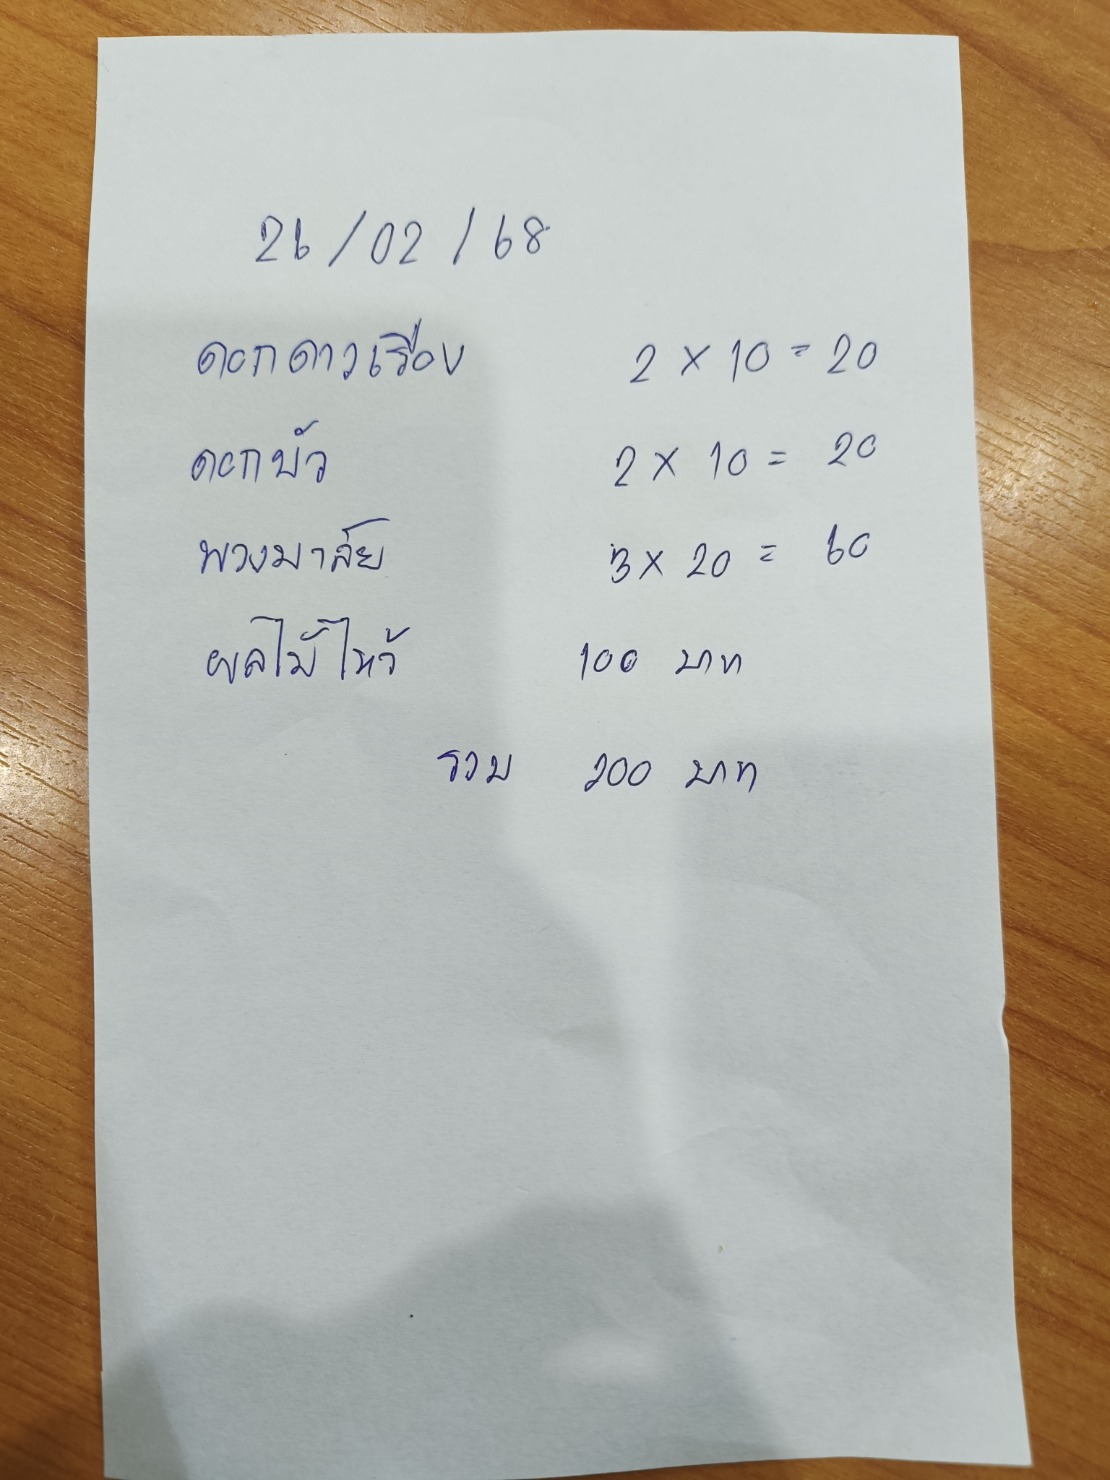 26/02/68
ดอกดาวเรือง 2 x 10 = 20
ดอกบัว 2 x 10 = 20
พวงมาลัย 3 x 20 = 60
ผลไม้ไหว้ 100 บาท
รวม 200 บาท